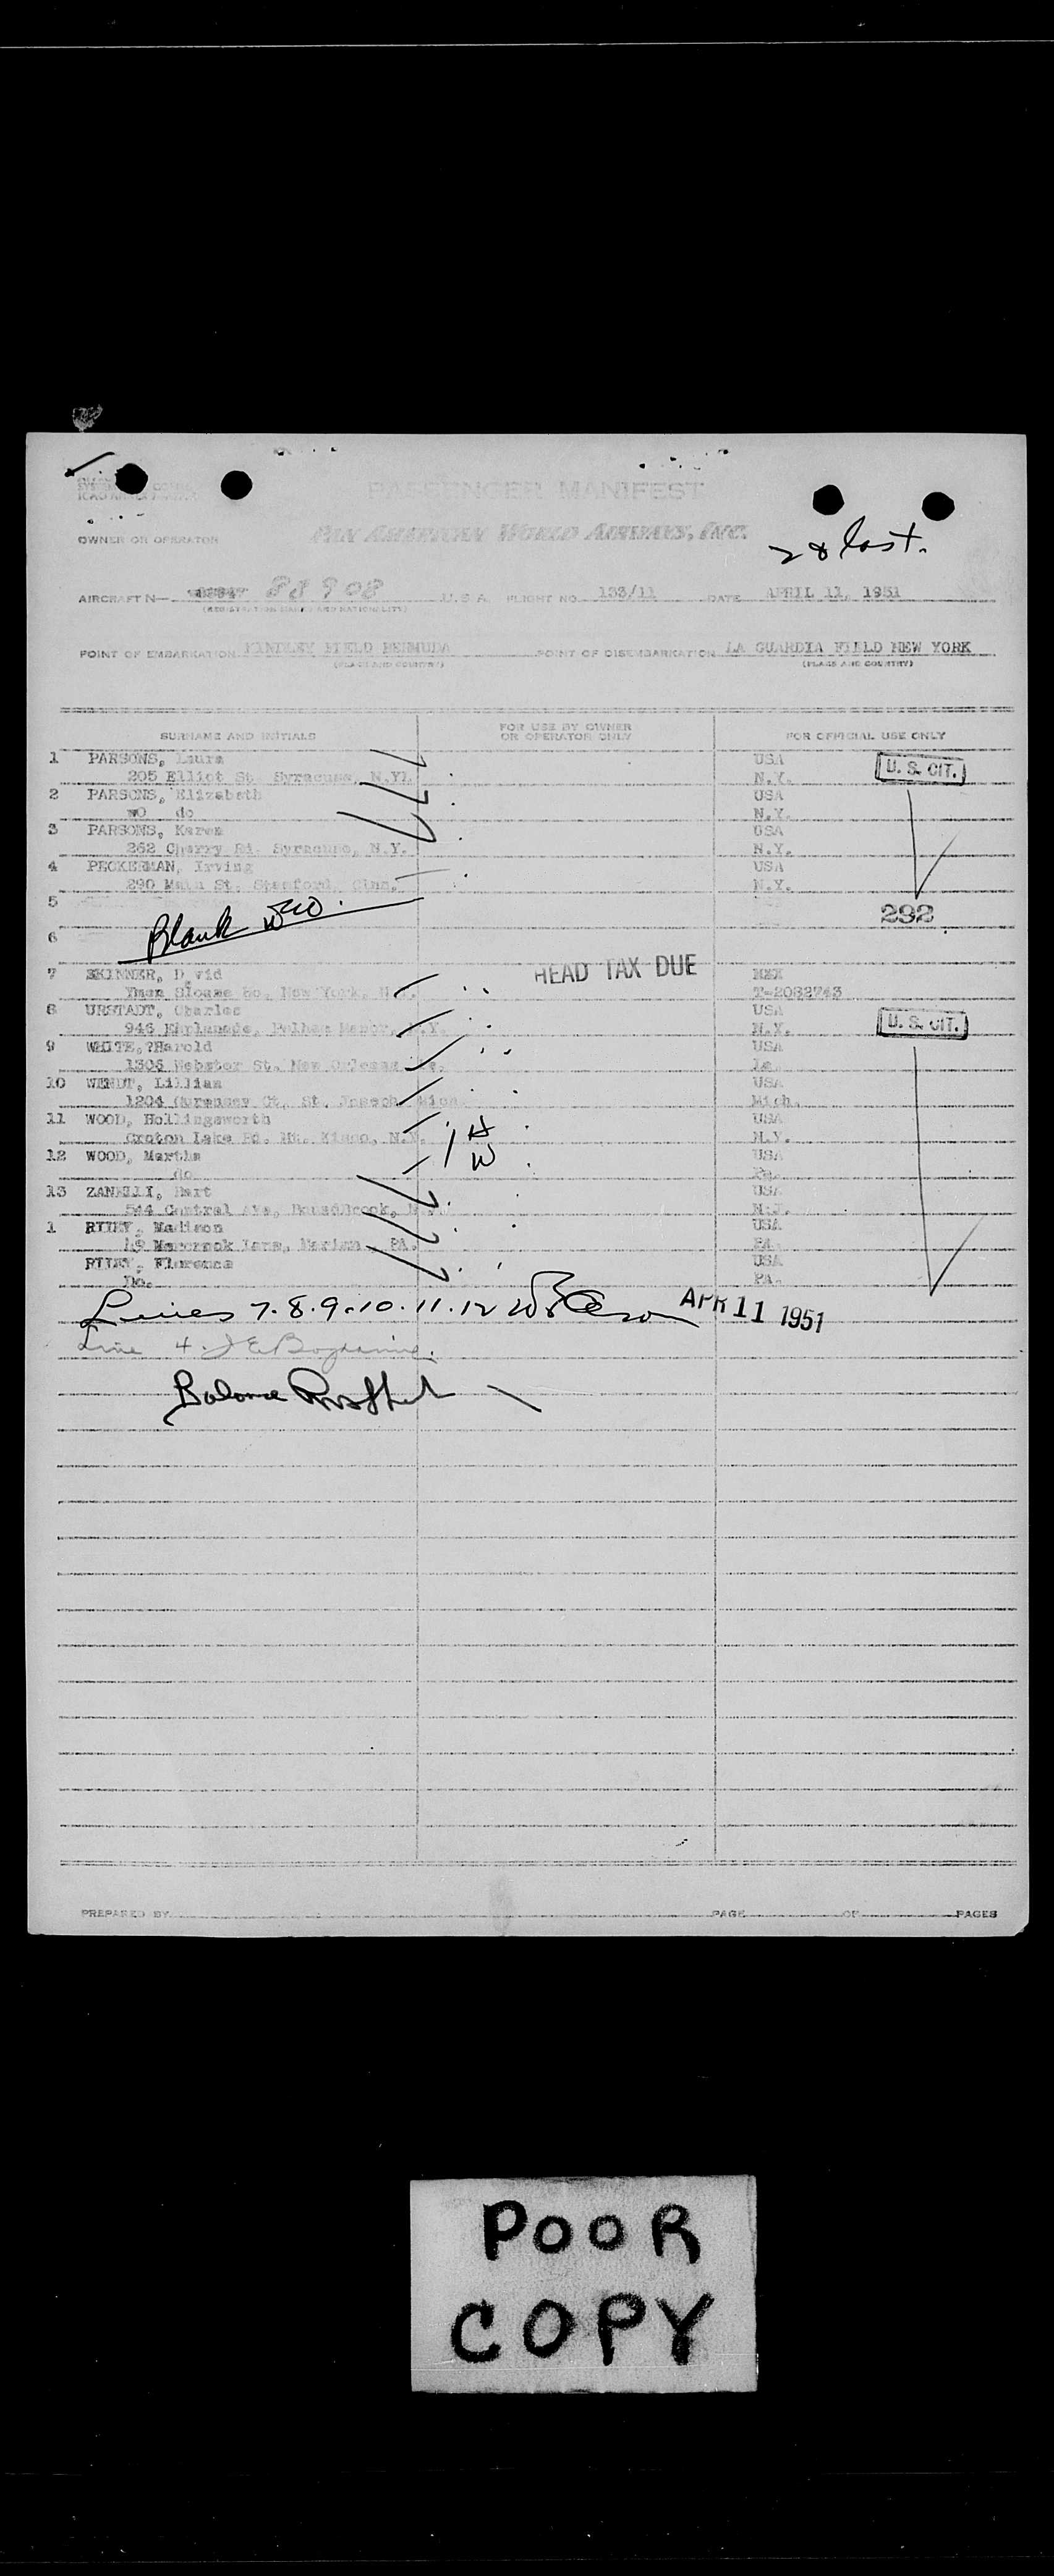 PASSENGER MANIFEST
OWNER OR OPERATOR PAN AMERICAN WORLD AIRWAYS, INC.
2 & last.
AIRCRAFT N— 88908 U.S.A. FLIGHT NO. 133/11 DATE APRIL 11, 1951
(REGISTRATION MARKS AND NATIONALITY)
POINT OF EMBARKATION KINDLEY FIELD BERMUDA POINT OF DISEMBARKATION LA GUARDIA FIELD NEW YORK
(PLACE AND COUNTRY) (PLACE AND COUNTRY)
SURNAME AND INITIALS FOR USE BY OWNER OR OPERATOR ONLY FOR OFFICIAL USE ONLY
1 PARSONS, Laura USA U. S. CIT.
205 Elliot St. Syracuse, N.Y. N.Y.
2 PARSONS, Elizabeth USA
do N.Y.
3 PARSONS, Karen USA
262 Cherry Rd. Syracuse, N.Y. N.Y.
4 PECKERMAN, Irving USA
290 Main St. Stamford, N.Y.
5 292
Blank
6
7 SKINNER, D vid HEAD TAX DUE
Sloane New York, N.Y. T-2082743
8 URSTADT, Charles USA U. S. CIT.
946 Esplanade, Pelham Manor, N.Y. N.Y.
9 WHITE, ?Harold USA
1305 Webster St. New Orleans La.
10 WENDT, Lillian USA
1204 Ct., St. Joseph, Mich. Mich.
11 WOOD, Hollingsworth H USA
Croton Lake Rd. Mt. Kisco, N.Y. N.Y.
12 WOOD, Martha W USA
do Pa.
13 ZANELLI, USA
544 Central Ave, N.J.
1 Madison USA
Lane, PA. PA.
Florence USA
Do. PA.
Lines 7.8.9.10.11.12 APR 11 1951
Line 4.
Balance
PREPARED BY PAGE OF PAGES
POOR
COPY